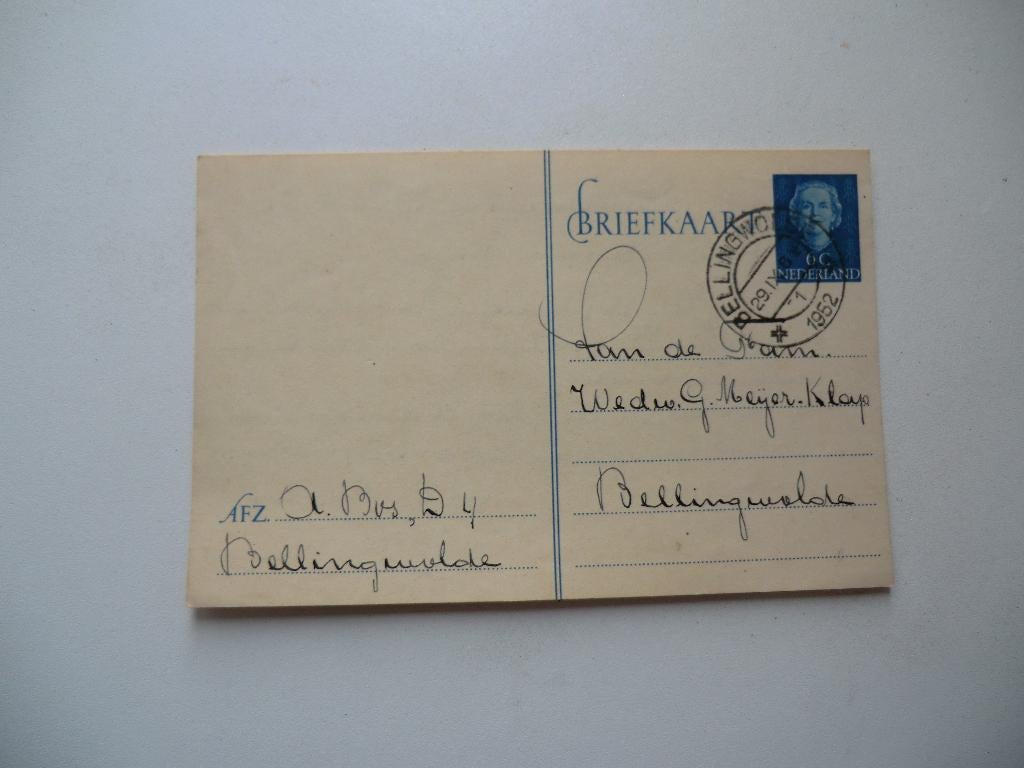 BRIEFKAART
6 C
NEDERLAND
BELLINGWOLDE
29.IX
1952
de Fam.
Wedw. G. Meijer-Klap
Bellingwolde
AFZ. A. Bos, D 4
Bellingwolde